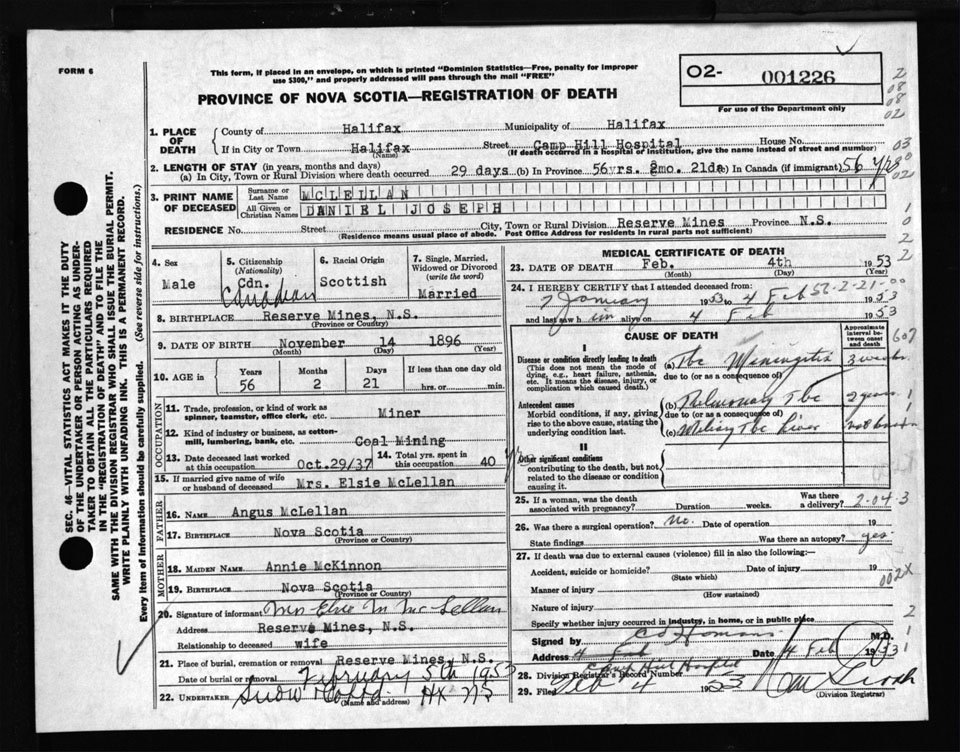 FORM 6
This form, if placed in an envelope, on which is printed "Dominion Statistics—Free, penalty for improper
use $300," and properly addressed will pass through the mail "FREE"
PROVINCE OF NOVA SCOTIA—REGISTRATION OF DEATH
02- 001226
For use of the Department only
1. PLACE OF DEATH
County of Halifax Municipality of Halifax
If in City or Town Halifax (Name) Street Camp Hill Hospital House No.
(If death occurred in a hospital or institution, give the name instead of street and number)
2. LENGTH OF STAY (in years, months and days)
(a) In City, Town or Rural Division where death occurred 29 days (b) In Province 56yrs. 2mo. 21da (c) In Canada (if immigrant) 56 yrs
3. PRINT NAME OF DECEASED
Surname or Last Name MCLELLAN
All Given or Christian Names DANIEL JOSEPH
RESIDENCE No. Street City, Town or Rural Division Reserve Mines Province N.S.
(Residence means usual place of abode. Post Office Address for residents in rural parts not sufficient)
4. Sex Male
5. Citizenship (Nationality) Cdn. Canadian
6. Racial Origin Scottish
7. Single, Married, Widowed or Divorced (write the word) Married
8. BIRTHPLACE Reserve Mines, N.S.
(Province or Country)
9. DATE OF BIRTH November 14 1896
(Month) (Day) (Year)
10. AGE in Years Months Days If less than one day old
56 2 21 hrs. or min.
OCCUPATION
11. Trade, profession, or kind of work as spinner, teamster, office clerk, etc. Miner
12. Kind of industry or business, as cotton-mill, lumbering, bank, etc. Coal Mining
13. Date deceased last worked at this occupation Oct.29/37
14. Total yrs. spent in this occupation 40 yrs
15. If married give name of wife or husband of deceased Mrs. Elsie McLellan
FATHER
16. NAME Angus McLellan
17. BIRTHPLACE Nova Scotia
(Province or Country)
MOTHER
18. MAIDEN NAME Annie McKinnon
19. BIRTHPLACE Nova Scotia
(Province or Country)
20. Signature of informant Mrs Elsie M McLellan
Address Reserve Mines, N.S.
Relationship to deceased wife
21. Place of burial, cremation or removal Reserve Mines, N.S.
Date of burial or removal February 5th 1953
22. UNDERTAKER Snow & Co Ltd. Hx NS
(Name and address)
MEDICAL CERTIFICATE OF DEATH
23. DATE OF DEATH Feb. 4th 1953
(Month) (Day) (Year)
24. I HEREBY CERTIFY that I attended deceased from:
7 January 1953 to 4 Feb 1953
and last saw him alive on 4 Feb 1953
CAUSE OF DEATH
Approximate interval between onset and death
I
Disease or condition directly leading to death
(This does not mean the mode of dying, e.g., heart failure, asthenia, etc. It means the disease, injury, or complication which caused death.)
(a) Tbc Meningitis 3 weeks
due to (or as a consequence of)
Antecedent causes
Morbid conditions, if any, giving rise to the above cause, stating the underlying condition last.
(b) Pulmonary Tbc 2 years
due to (or as a consequence of)
(c) Miliary Tbc Liver not known
II
Other significant conditions
contributing to the death, but not related to the disease or condition causing it.
25. If a woman, was the death associated with pregnancy? Duration weeks. Was there a delivery?
2-04-3
26. Was there a surgical operation? No. Date of operation 19
State findings Was there an autopsy? yes
27. If death was due to external causes (violence) fill in also the following:—
Accident, suicide or homicide? Date of injury 19
(State which)
002X
Manner of injury
(How sustained)
Nature of injury
Specify whether injury occurred in industry, in home, or in public place
Signed by M.D.
Address 4 Feb Date 4 Feb 1953
Camp Hill Hospital
28. Division Registrar's Record Number
29. Filed Feb 4 1953
(Division Registrar)
SEC. 46—VITAL STATISTICS ACT MAKES IT THE DUTY
OF THE UNDERTAKER OR PERSON ACTING AS UNDER-
TAKER TO OBTAIN ALL THE PARTICULARS REQUIRED
IN THE "REGISTRATION OF DEATH" AND TO FILE THE
SAME WITH THE DIVISION REGISTRAR WHO SHALL ISSUE THE BURIAL PERMIT.
WRITE PLAINLY WITH UNFADING INK. THIS IS A PERMANENT RECORD.
Every item of Information should be carefully supplied. (See reverse side for instructions.)